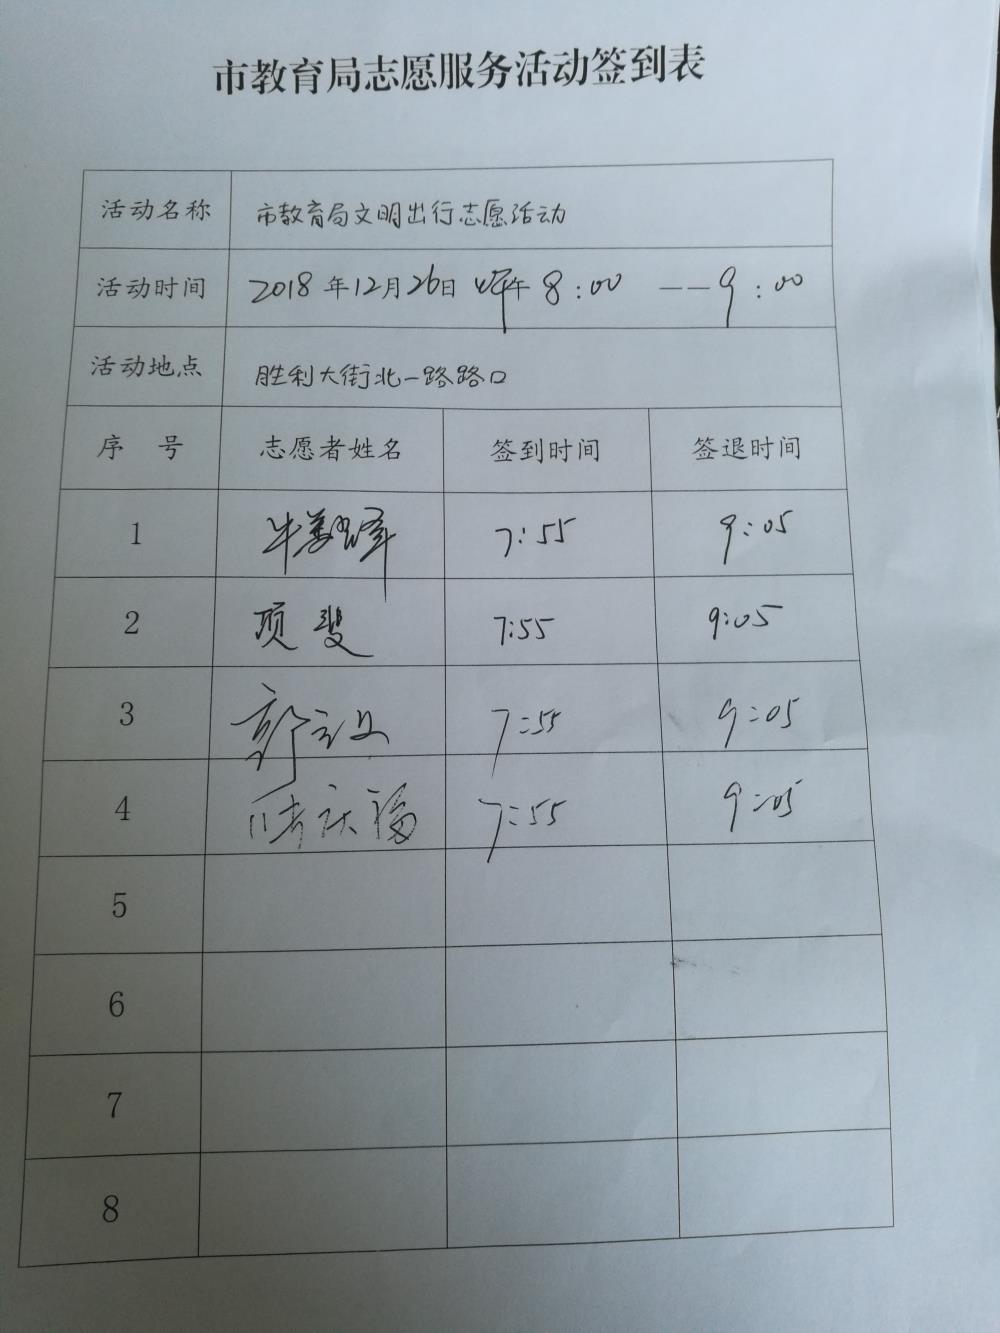 市教育局志愿服务活动签到表
活动名称 市教育局文明出行志愿活动
活动时间 2018年12月26日 上午 8:00 —— 9:00
活动地点 胜利大街北一路路口
序 号 志愿者姓名 签到时间 签退时间
1 7:55 9:05
2 项斐 7:55 9:05
3 7:55 9:05
4 陆庆福 7:55 9:05
5
6
7
8